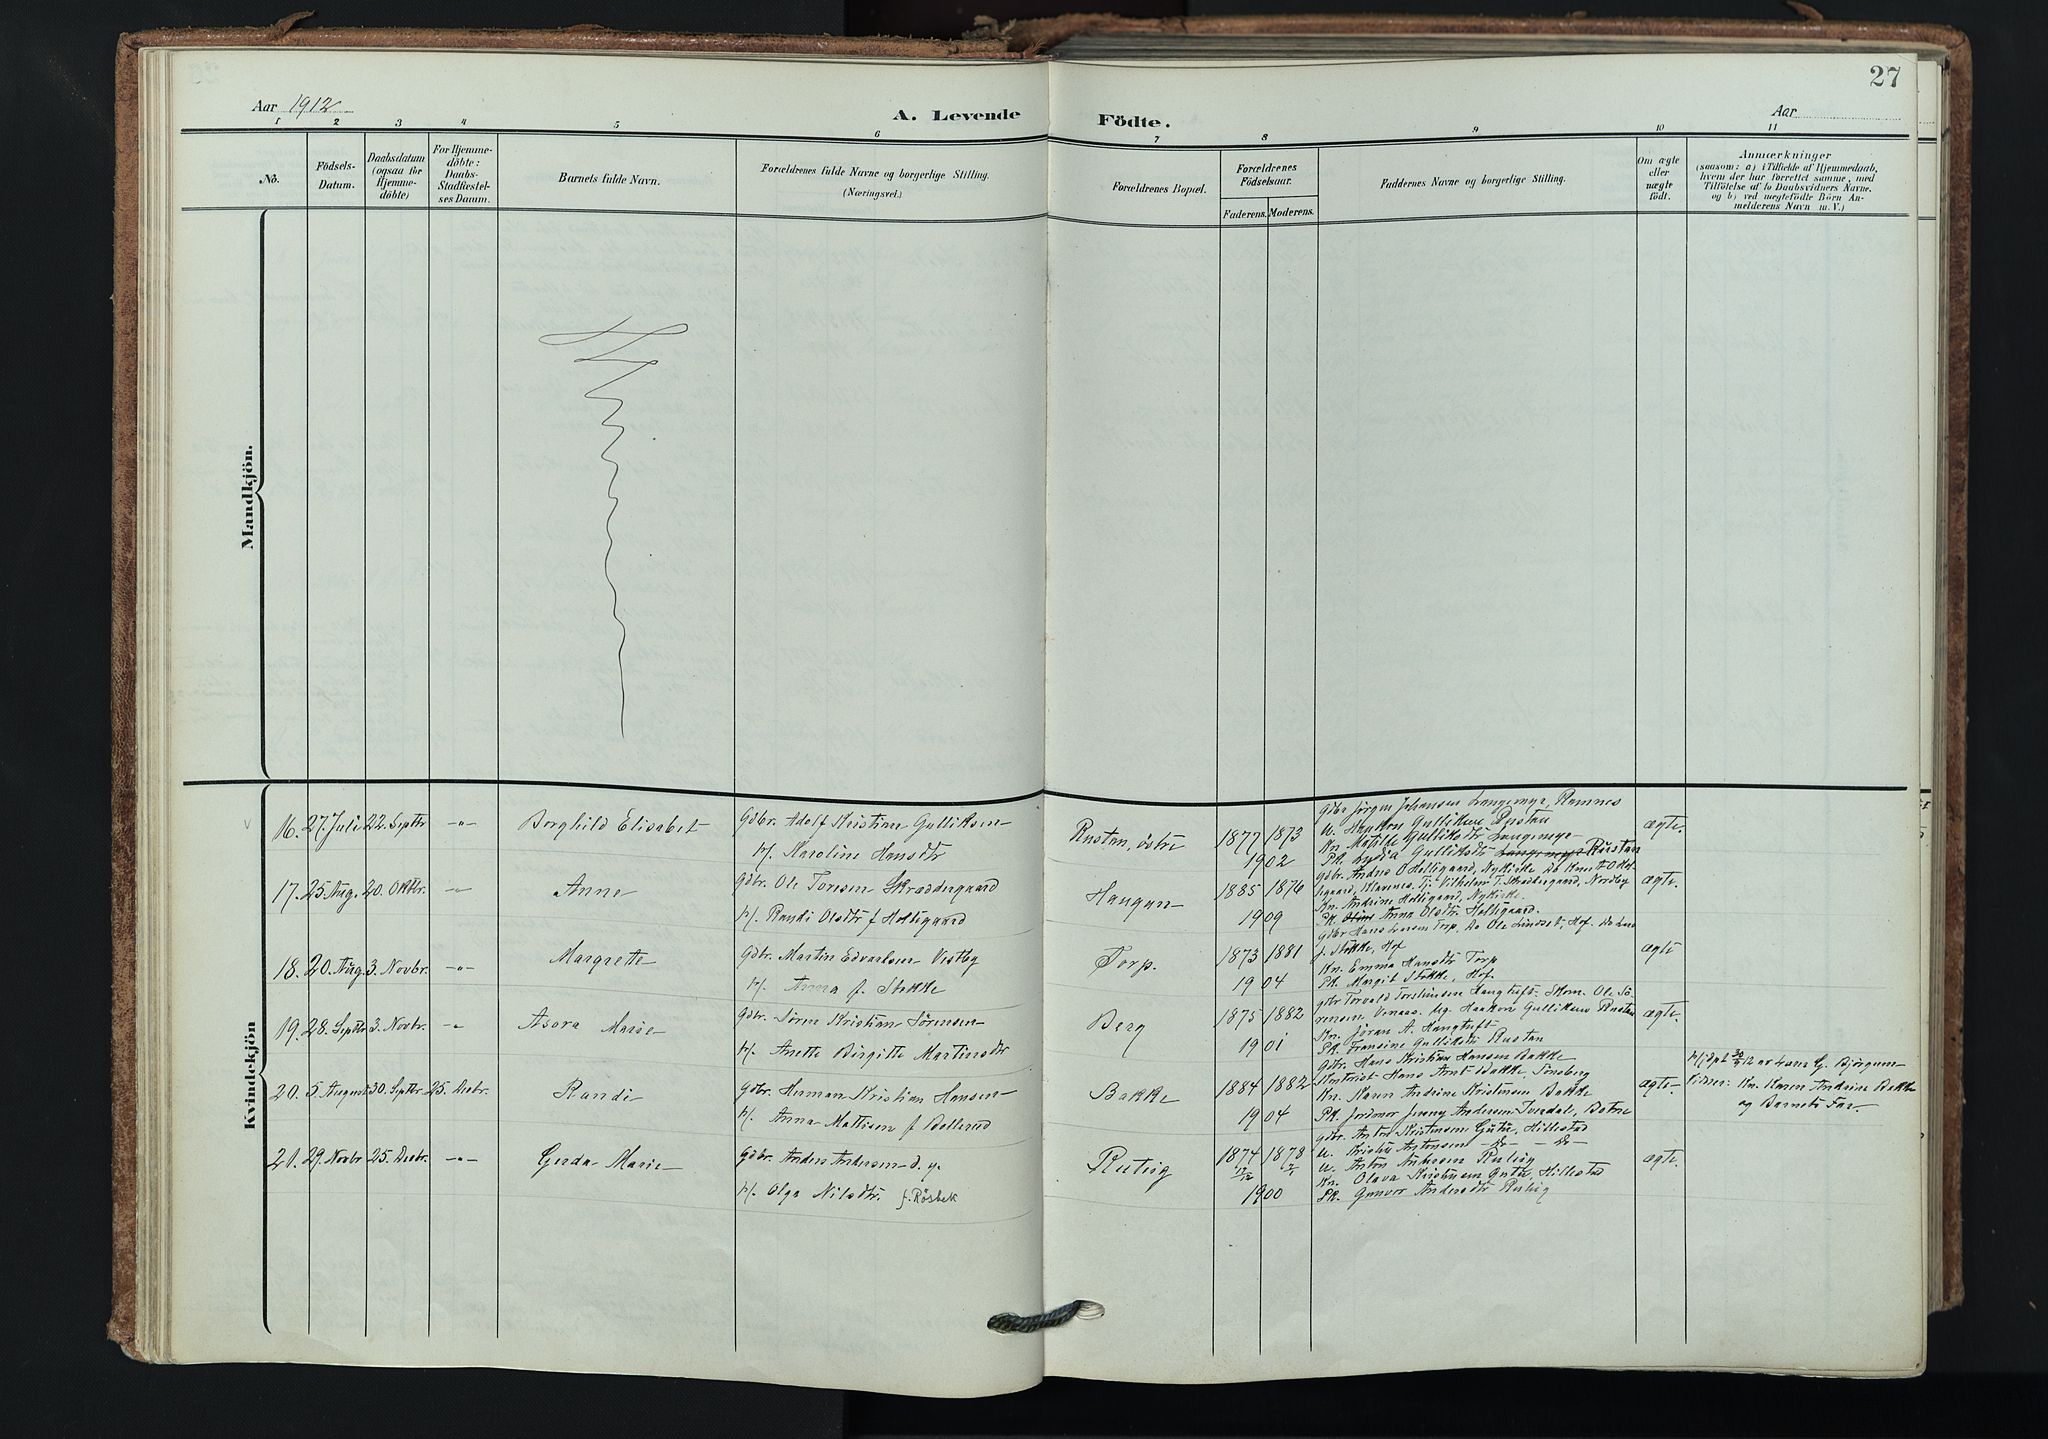 27
Aar 1912
A. Levende Födte.
Aar
1 2 3 4 5 6 7 8 9 10 11
No.
Födsels-Datum.
Daabsdatum (ogsaa for Hjemme-döbte)
For Hjemme-döbte: Daabs-Stadfæstel-ses Datum.
Barnets fulde Navn.
Forældrenes fulde Navne og borgerlige Stilling.
(Næringsvei.)
Forældrenes Bopæl.
Forældrenes Födselsaar.
Faderens. Moderens.
Faddernes Navne og borgerlige Stilling.
Om ægte eller uægte født.
Anmærkninger
(saasom: a) i Tilfælde af Hjemmedaab, hvem der har forrettet samme, med Tilføielse af to Daabsvidners Navne, og b) ved uægtefødte Börn An-melderens Navn m. V.)
Mandkjön.
Kvindekjön
16. 27. Juli 22. Septbr -"- Borghild Elisabet
Gdbr. Adolf Kristian Gulliksen
H. Karoline Hansdtr
Rustan, östre 1877 1873
1902
Gdbr Jørgen Johansen Langemyr, Ramnes
U. Haakon Gulliksen Rustan
Kn. Matilde Gulliksdtr Langemyr
Pk. Lydia Gulliksdtr Rustan
ægte.
17. 25 Aug. 20. Oktbr. -"- Anne
Gdbr. Ole Toresen Skræddergaard
H. Randi Olsdtr f Holtigaard
Haugan 1885 1876
1909
Gdbr. Andrs O Holtigaard, Nykirke
Vilhelm T. Skræddergaard, Nordby
Kn. Andrine Holtigaard, Nykirke.
Pk. Anna Olsdtr. Holtigaard.
ægte.
18. 20. Aug. 3. Novbr. -"- Margrete
Gdbr. Martin Edvardsen Vestby
H. Anna f. Stokke
Torp. 1873 1881
1904
Gdbr Hans Larsen Torp, Do Ole Lindset, Hof. Do Lars
J. Stokke, Hof
Kn. Emma Hansdtr Torp
Pk. Margit Stokke, Hof.
ægte
19. 28. Septbr 3. Novbr. -"- Asora Marie
Gdbr. Sören Kristian Sörensen
H. Anette Birgitte Martinsdtr
Berg 1875 1882
1901
Gdbr Torvald Torstensen Haugtuft. Skom. Ole Sö-
rensen Haakon Gulliksen Rustan
Kn. Jöran A. Haugtuft
Pk. Fransine Gulliksdtr Rustan
ægte.
20. 5. August 30. Septbr. 25. Decbr. Randi
Gdbr. Herman Kristian Hansen
H. Anna Mattisen f Bollerud
Bakke 1884 1882
1904
Gdbr. Hans Kristian Hansen Bakke
Hans Bakke Tönsberg
Kn. Karen Andrine Kristensen Bakke
Pk. Jordmor Jenny Andersen Tverdal, Botne
ægte
Hjdpt 30/9 12 av Lars G. Bjørgum
Vidner: Kn. Karen Andrine Bakke
og Barnets Far.
21. 29. Novbr 25. Decbr. -"- Gerda Marie
Gdbr. Anders Andersen d. y.
H. Olga Nilsdtr. f. Røsbek
Rutvig 1874 1878
1900
Gdbr. Anton Kristensen Gutu, Hillestad
U. Kristian Antonsen -Do- -Do-
U. Anton Andersen Rutvig
Kn. Olava Kristensen Gutu, Hillestad
Pk. Gunvor Andersdtr Rutvig
ægte.